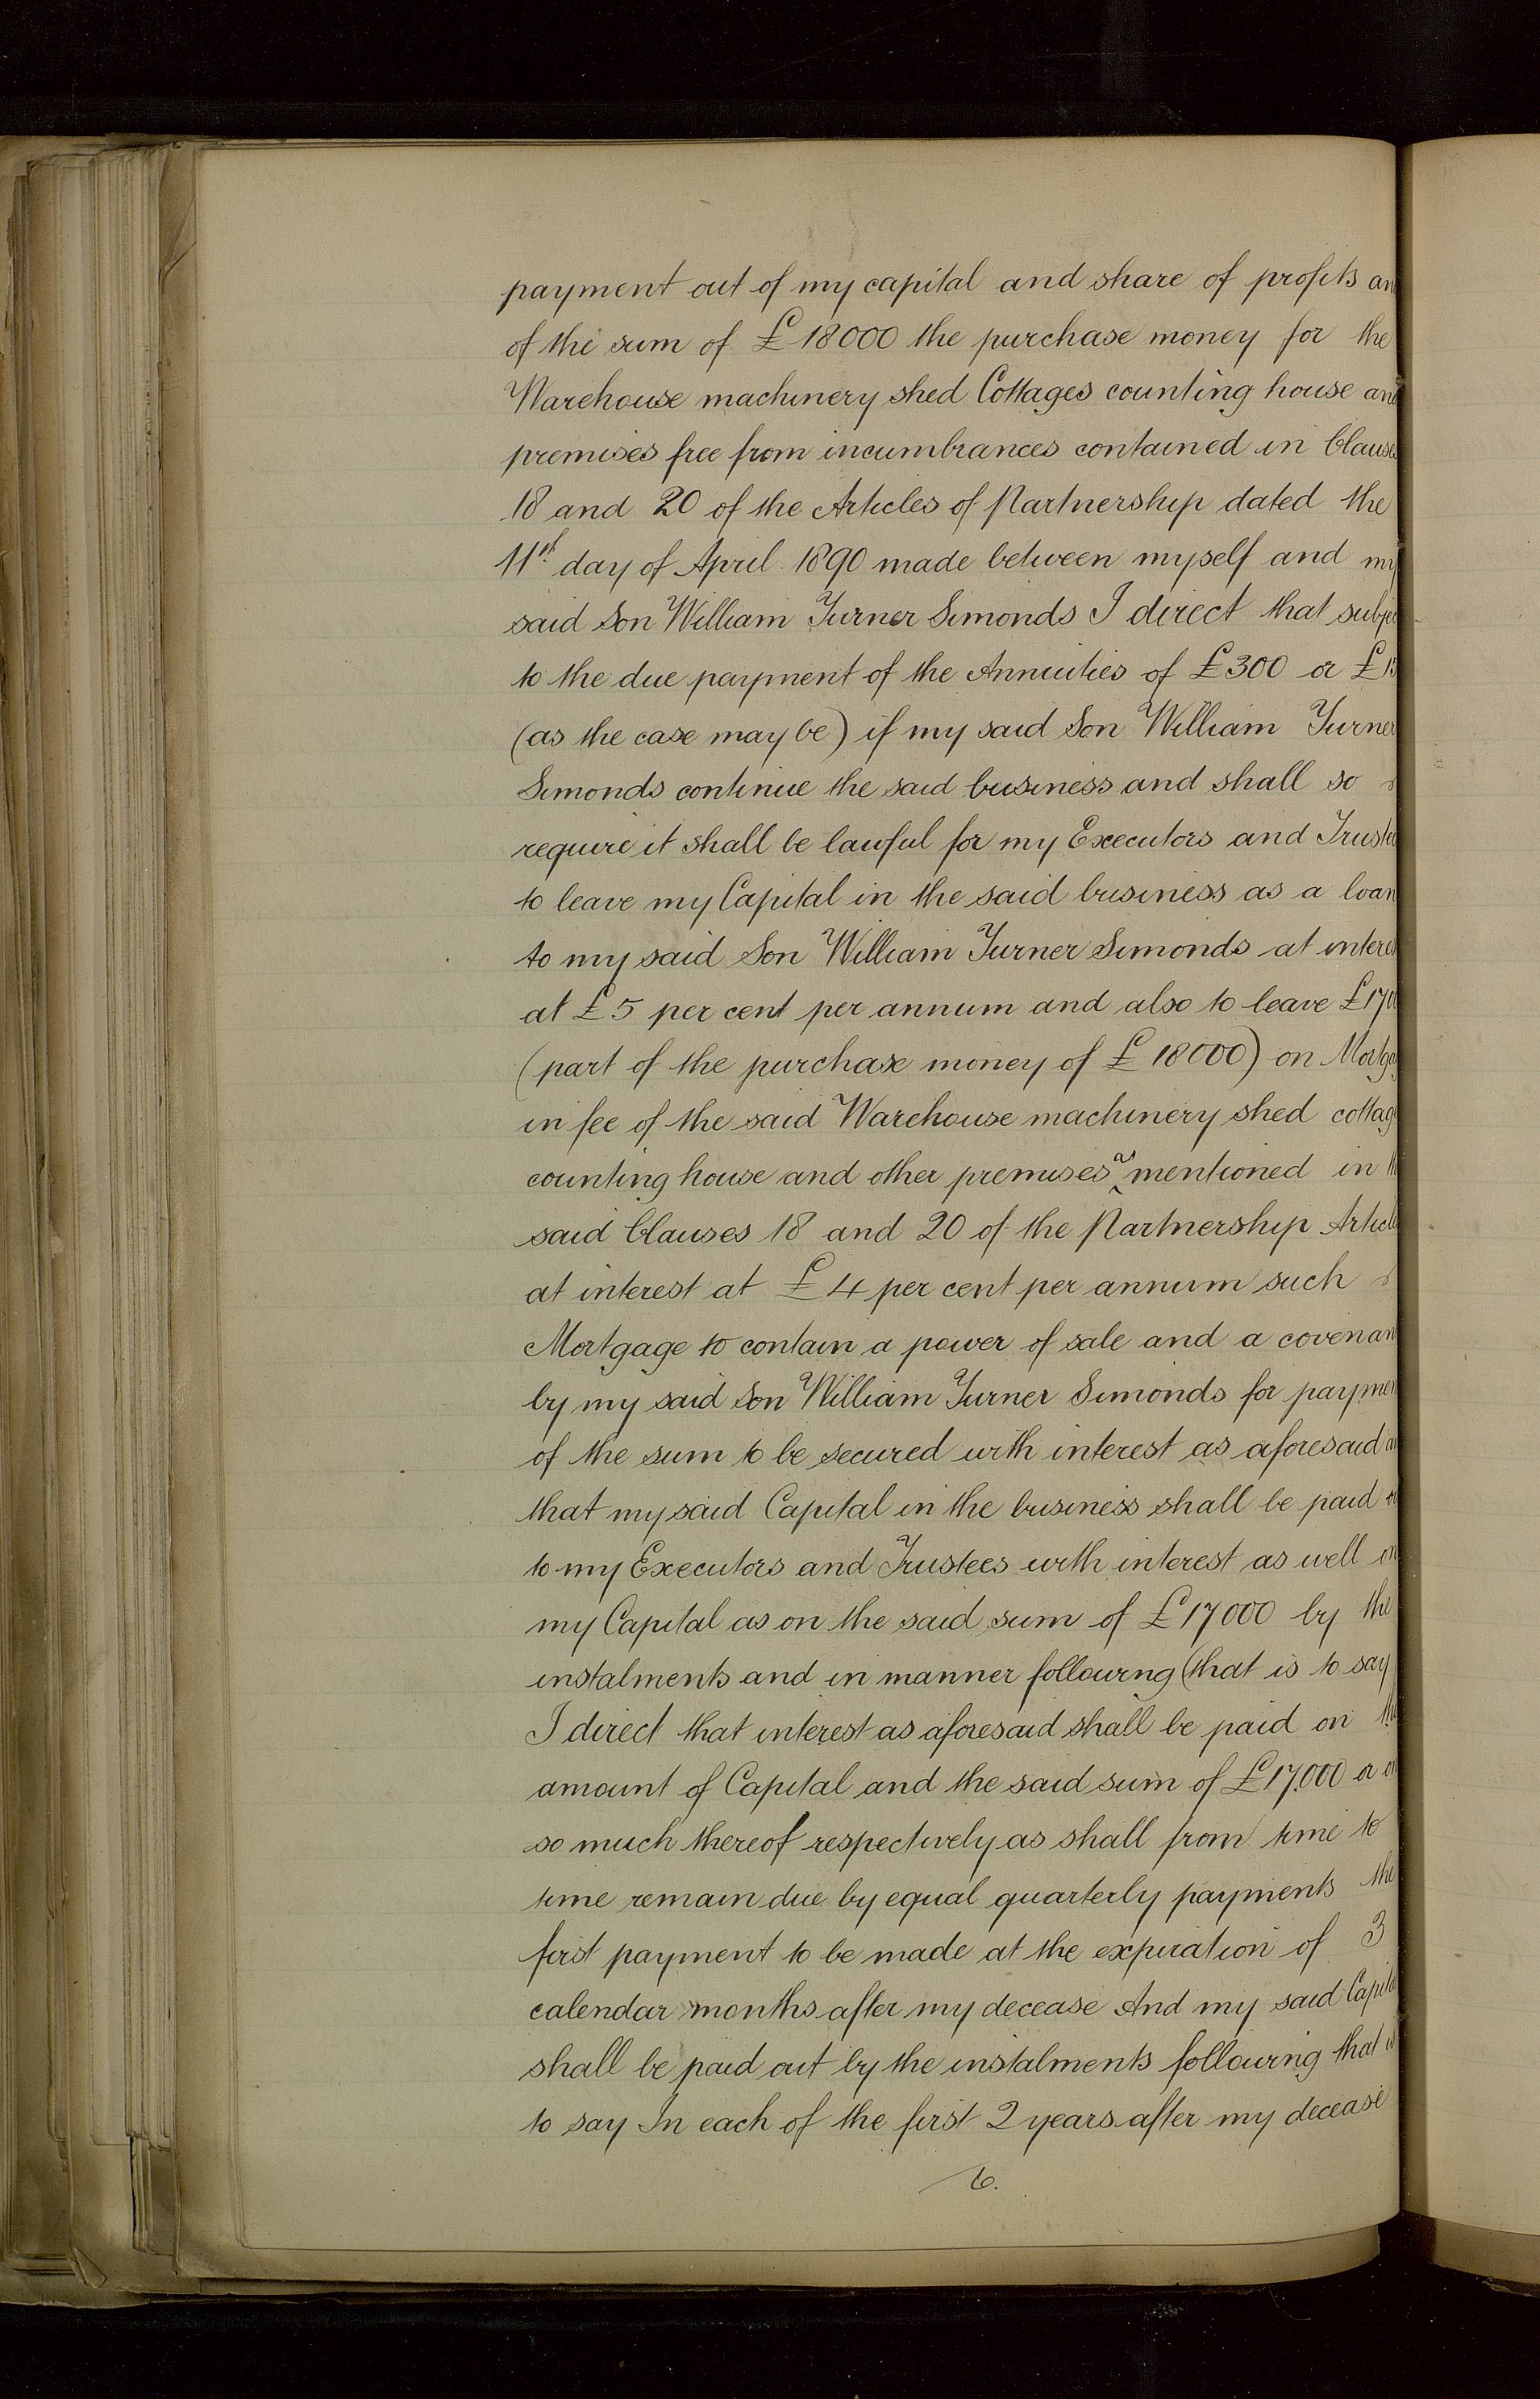 payment out of my capital and share of profits an
of the sum of £18000 the purchase money for the
Warehouse machinery shed Cottages counting house and
premises free from incumbrances contained in Clause
18 and 20 of the Articles of Partnership dated the
11th day of April 1890 made between myself and my
said Son William Turner Simonds I direct that subje
to the due payment of the Annuities of £300 or £15
(as the case may be) if my said Son William Turner
Simonds continue the said business and shall so
require it shall be lawful for my Executors and Truste
to leave my Capital in the said business as a loan
to my said Son William Turner Simonds at intere
at £5 per cent per annum and also to leave £170
(part of the purchase money of £18000) on Mortga
in fee of the said Warehouse machinery shed cottag
counting house and other premises as mentioned in th
said Clauses 18 and 20 of the Partnership Article
at interest at £4 per cent per annum such
Mortgage to contain a power of sale and a covenan
by my said Son William Turner Simonds for paymen
of the sum to be secured with interest as aforesaid an
that my said Capital in the business shall be paid o
to my Executors and Trustees with interest as well on
my Capital as on the said sum of £17000 by the
instalments and in manner following (that is to say
I direct that interest as aforesaid shall be paid on the
amount of Capital and the said sum of £17000 or on
so much thereof respectively as shall from time to
time remain due by equal quarterly payments the
first payment to be made at the expiration of 3
calendar months after my decease And my said Capita
shall be paid out by the instalments following that is
to say In each of the first 2 years after my decease
6.